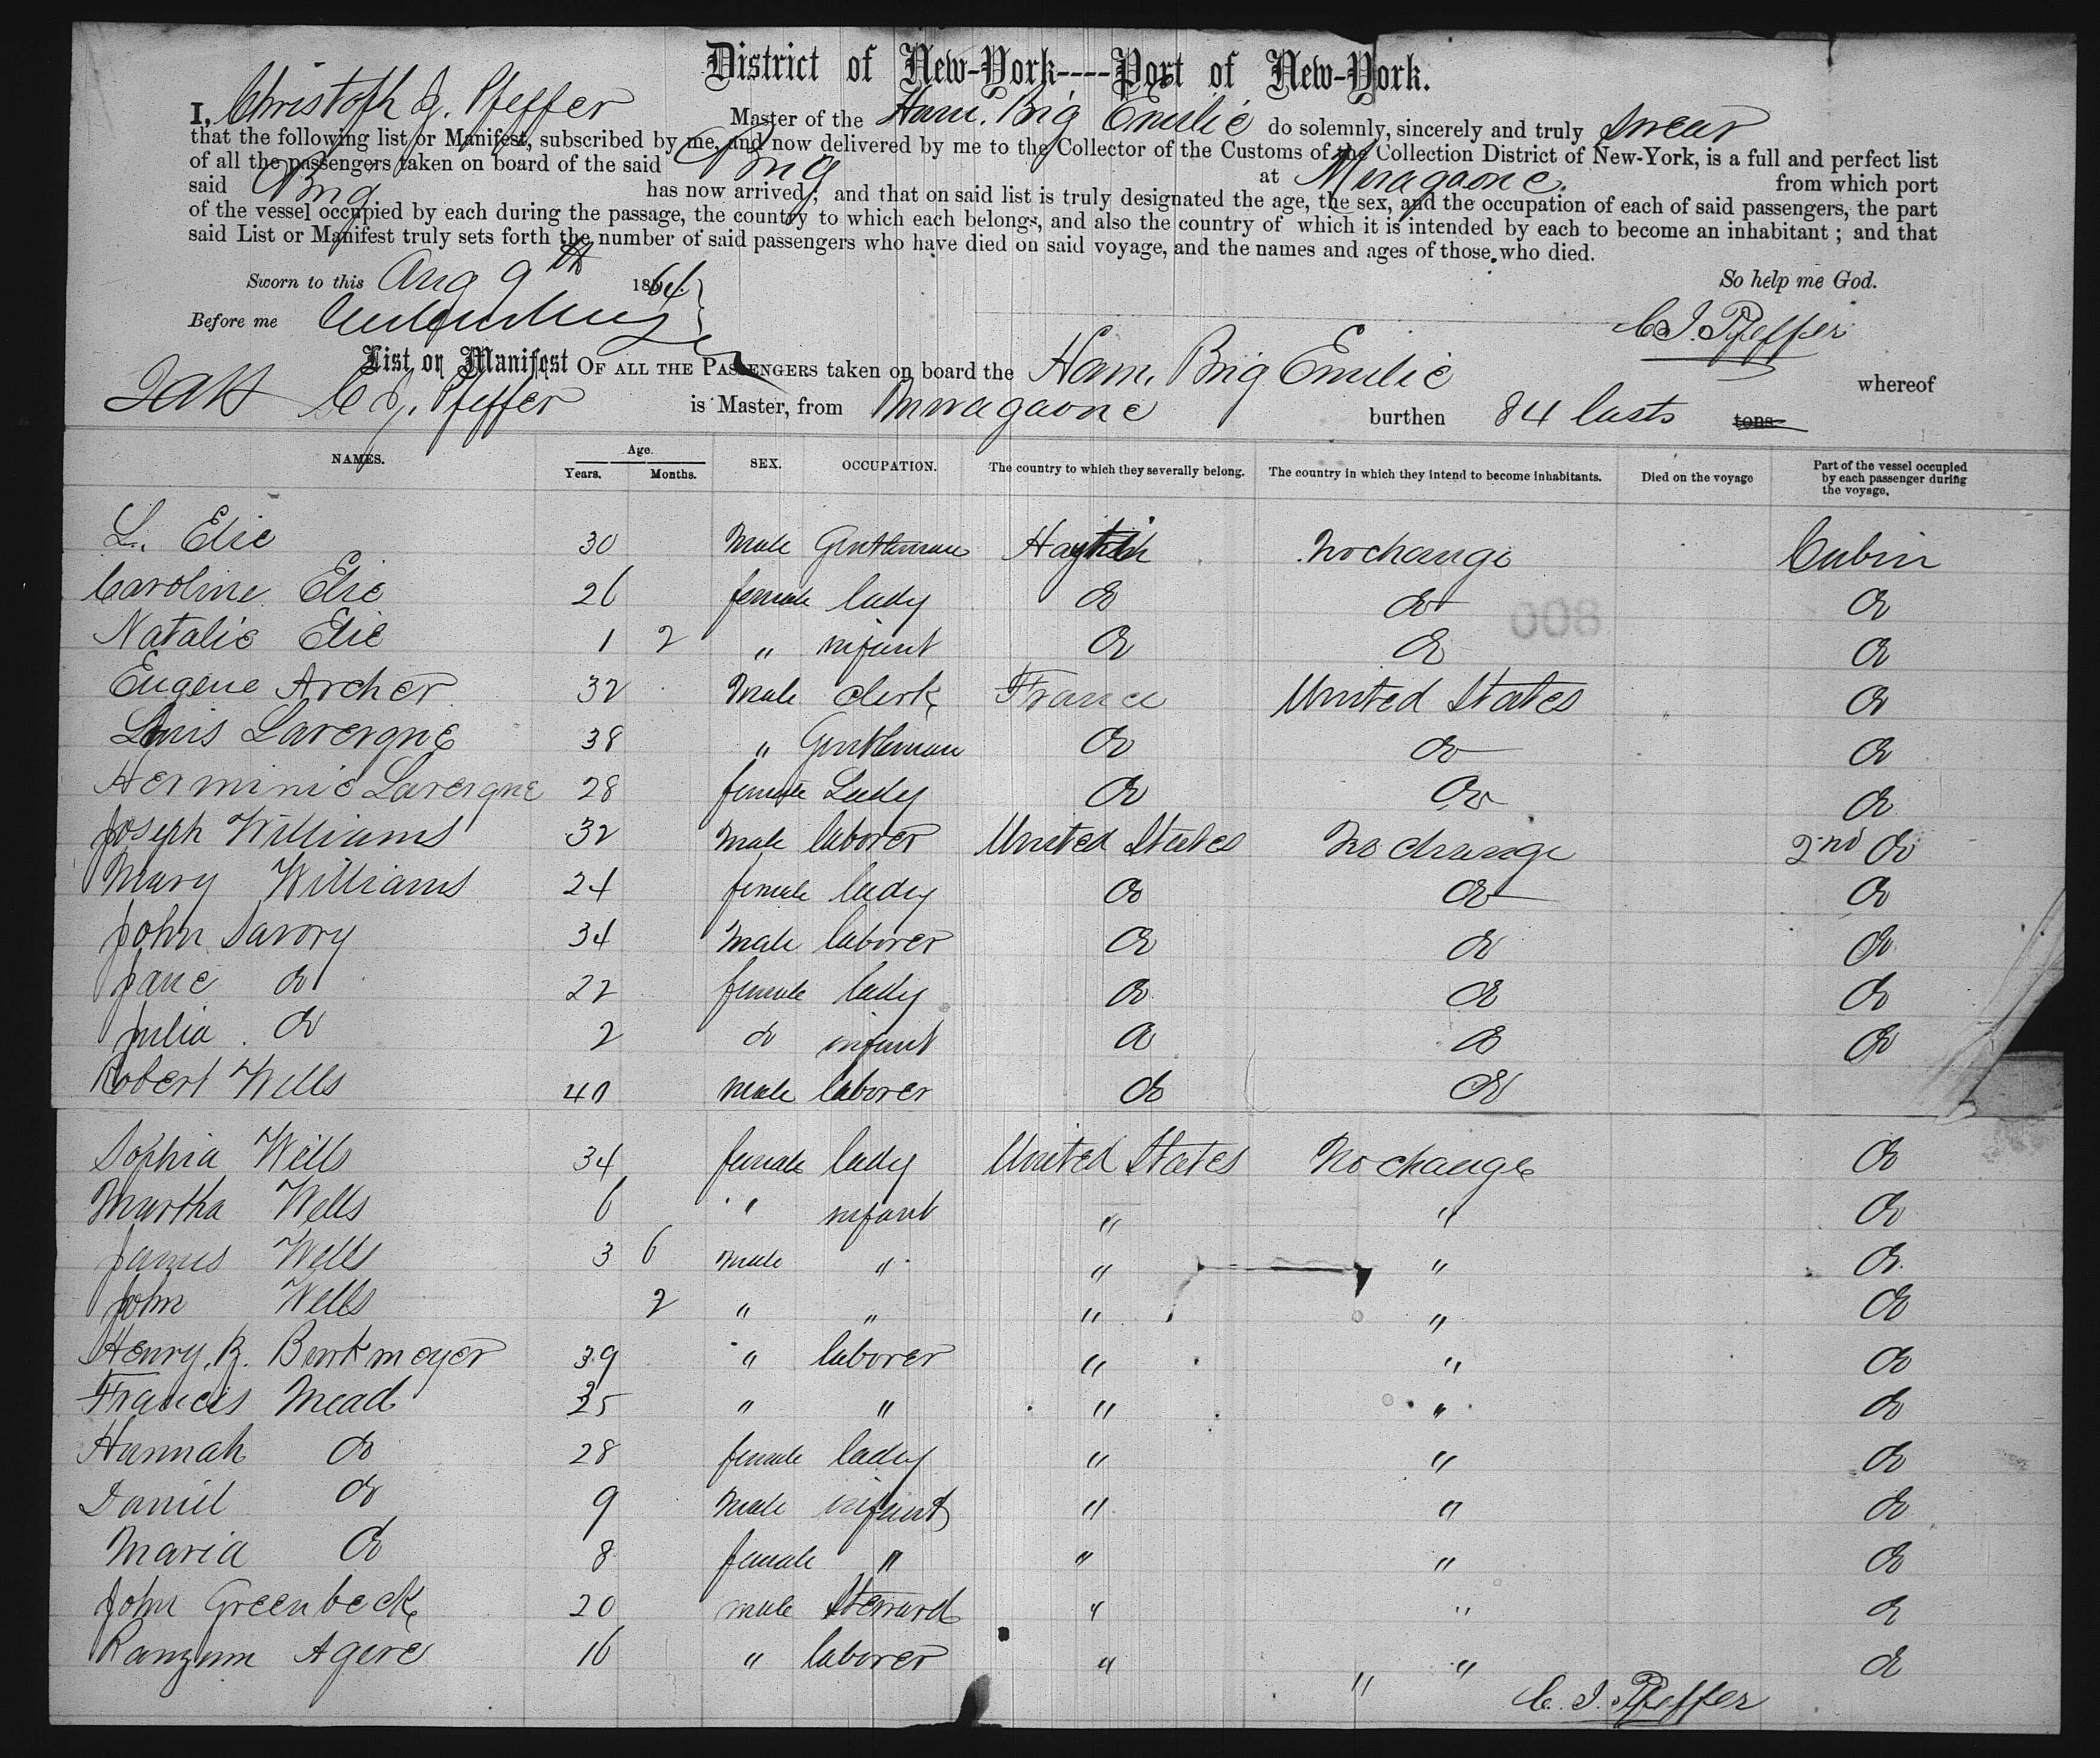 District of New-York----Port of New-York.
I, Christoph J. Pfeffer Master of the Ham. Brig Emilie do solemnly, sincerely and truly swear
that the following list or Manifest, subscribed by me, and now delivered by me to the Collector of the Customs of the Collection District of New-York, is a full and perfect list
of all the passengers taken on board of the said Brig at Miragaone. from which port
said Brig has now arrived; and that on said list is truly designated the age, the sex, and the occupation of each of said passengers, the part
of the vessel occupied by each during the passage, the country to which each belongs, and also the country of which it is intended by each to become an inhabitant; and that
said List or Manifest truly sets forth the number of said passengers who have died on said voyage, and the names and ages of those who died.
Sworn to this Aug 9th 1864. So help me God.
Before me C. J. Pfeffer
List or Manifest OF ALL THE PASSENGERS taken on board the Ham. Brig Emilie whereof
C. J. Pfeffer is Master, from Miragaone burthen 84 lasts tons
NAMES. Age. Years. Months. SEX. OCCUPATION. The country to which they severally belong. The country in which they intend to become inhabitants. Died on the voyage Part of the vessel occupied by each passenger during the voyage.
L. Elie 30 Male Gentleman No change Cabin
Caroline Elie 26 female lady do do do
008
Natalie Elie 1 2 " infant do do do
Eugene Archer 32 Male clerk France United States do
Louis Lavergne 38 " Gentleman do do do
Herminie Lavergne 28 female Lady do do do
Joseph Williams 32 male laborer United States No change 2nd do
Mary Williams 24 female lady do do do
John Savory 34 male laborer do do do
Jane do 22 female lady do do do
Julia do 2 do infant do do do
Robert Wells 40 male laborer do do
Sophia Wells 34 female lady United States No change do
Martha Wells 6 " infant " " do
James Wells 3 6 male " " " do
John Wells 2 " " " " do
Henry B. Burkmeyer 39 " laborer " " do
Francis Mead 35 " " " " do
Hannah do 28 female lady " " do
Daniel do 9 male infant " " do
Maria do 8 female " " " do
John Greenbeck 20 male Steward " " do
Ranzum Agere 16 " laborer " " do
" C. J. Pfeffer